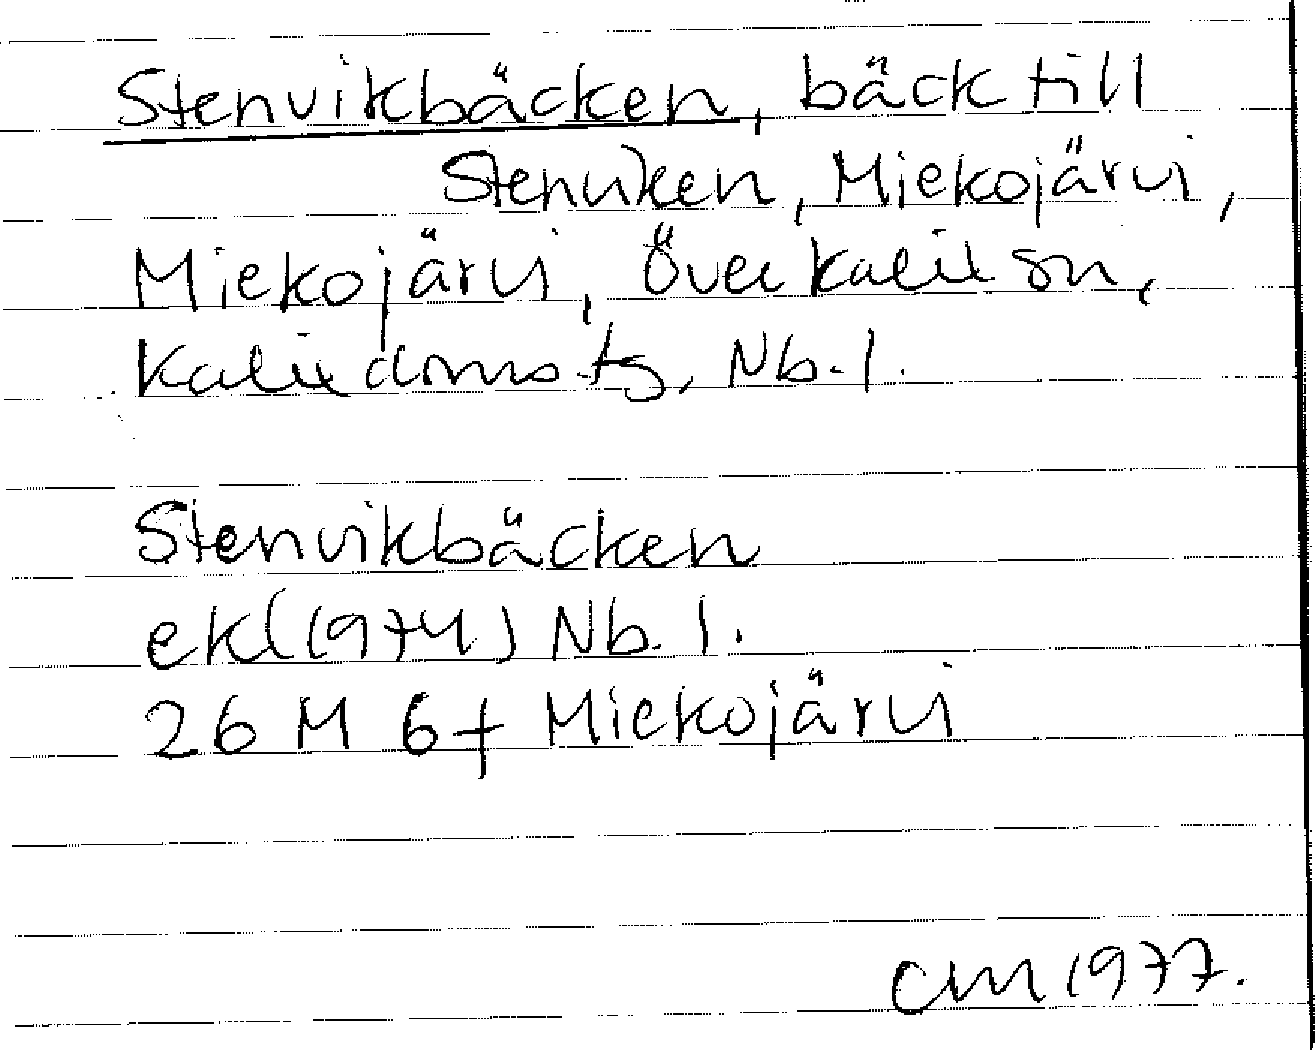 Stenvikbäcken, bäck till
Stenviken, Miekojärvi,
Miekojärvi, Överkalix sn,
Kalix domstg, Nb. l.
Stenvikbäcken
ekl (1974) Nb. l.
26 M 6f Miekojärvi
CM 1977.